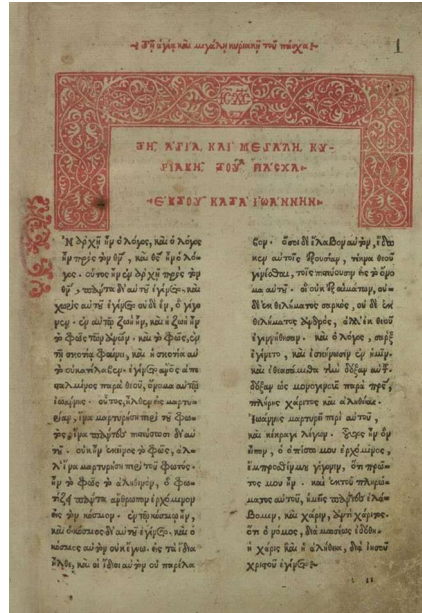 Τῇ ἁγίᾳ καὶ μεγάλῃ κυριακῇ τοῦ πάσχα
1
ΤΗ ΑΓΙΑ ΚΑΙ ΜΕΓΑΛΗ ΚΥ-
ΡΙΑΚΗ ΤΟΥ ΠΑΣΧΑ
ΕΚ ΤΟΥ ΚΑΤΑ ΙΩΑΝΝΗΝ
Ἐν ἀρχῇ ἦν ὁ λόγος, καὶ ὁ λόγος
ἦν πρὸς τὸν θν̄, καὶ θς̄ ἦν ὁ λό-
γος. οὗτος ἦν ἐν ἀρχῇ πρὸς τὸν
θν̄, πάντα δι' αὐτοῦ ἐγένετο, καὶ
χωρὶς αὐτοῦ ἐγένετο οὐδὲ ἕν, ὃ γέγο
νεν. ἐν αὐτῷ ζωὴ ἦν, καὶ ἡ ζωὴ ἦν
τὸ φῶς τῶν ἀν̄ων. καὶ τὸ φῶς, ἐν
τῇ σκοτίᾳ φαίνει, καὶ ἡ σκοτία αὐ
τὸ οὐ κατέλαβεν. ἐγένετο ἄν̄ος ἀπε
σταλμένος παρὰ θεοῦ, ὄνομα αὐτῷ
ἰωάννης. οὗτος, ἦλθεν εἰς μαρτυ-
ρίαν, ἵνα μαρτυρήσῃ περὶ τοῦ φω-
τὸς, ἵνα πάντες πιστεύσωσι δι' αὐ
τοῦ. οὐκ ἦν ἐκεῖνος τὸ φῶς, ἀλ-
λ' ἵνα μαρτυρήσῃ περὶ τοῦ φωτός.
ἦν τὸ φῶς τὸ ἀληθινὸν, ὃ φω-
τίζει πάντα ἄνθρωπον ἐρχόμενον
εἰς τὸν κόσμον. ἐν τῷ κόσμῳ ἦν,
καὶ ὁ κόσμος δι' αὐτοῦ ἐγένετο. καὶ ὁ
κόσμος αὐτὸν οὐκ ἔγνω. εἰς τὰ ἴδια
ἦλθε, καὶ οἱ ἴδιοι αὐτὸν οὐ παρέλα
βον. ὅσοι δὲ ἔλαβον αὐτὸν, ἔδω
κεν αὐτοῖς ἐξουσίαν, τέκνα θεοῦ
γενέσθαι, τοῖς πιστεύουσιν εἰς τὸ ὄνο
μα αὐτοῦ. οἳ οὐκ ἐξ αἱμάτων, οὐ-
δὲ ἐκ θελήματος σαρκὸς, οὐδὲ ἐκ
θελήματος ἀνδρὸς, ἀλλ' ἐκ θεοῦ
ἐγεννήθησαν. καὶ ὁ λόγος, σαρξ
ἐγένετο, καὶ ἐσκήνωσεν ἐν ἡμῖν.
καὶ ἐθεασάμεθα τὴν δόξαν αὐτοῦ.
δόξαν ὡς μονογενοῦς παρὰ πρς̄,
πλήρης χάριτος καὶ ἀληθείας.
ἰωάννης μαρτυρεῖ περὶ αὐτοῦ,
καὶ κέκραγε λέγων. οὗτος ἦν ὃν
εἶπον, ὁ ὀπίσω μου ἐρχόμενος,
ἔμπροσθέν μου γέγονεν, ὅτι πρῶ-
τός μου ἦν. καὶ ἐκ τοῦ πληρώ-
ματος αὐτοῦ, ἡμεῖς πάντες ἐλά-
βομεν, καὶ χάριν, ἀντὶ χάριτος.
ὅτι ὁ νόμος, διὰ μωσέως ἐδόθη.
ἡ χάρις καὶ ἡ ἀλήθεια, διὰ ἰησοῦ
χριστοῦ ἐγένετο